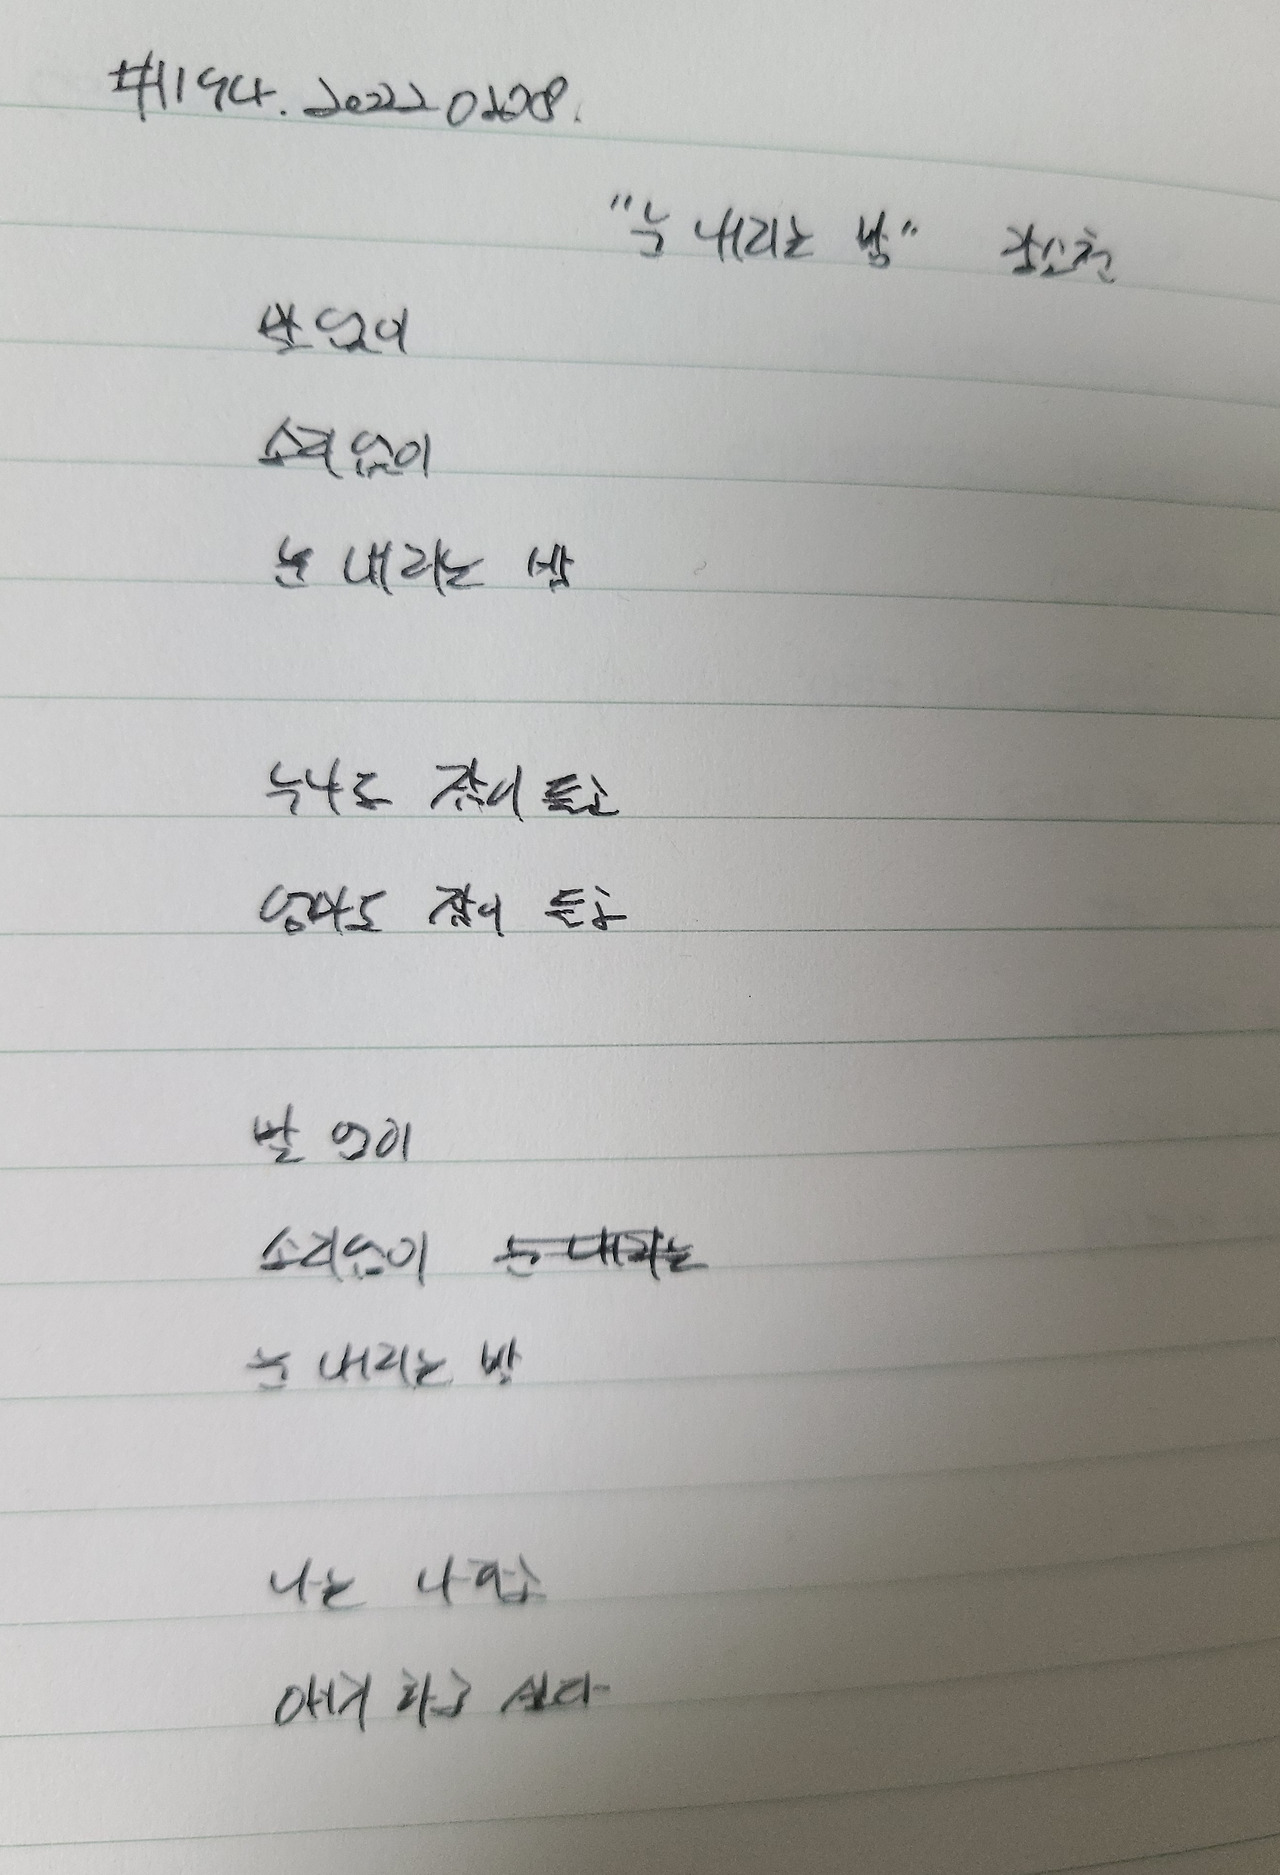 #1194. 20220208.
"눈 내리는 밤" 강소천
말 없이
소리 없이
눈 내리는 밤
누나도 잠이 들고
엄마도 잠이 들고
말 없이
소리 없이 눈 내리는
눈 내리는 밤
나는 나하고
얘기 하고 싶다